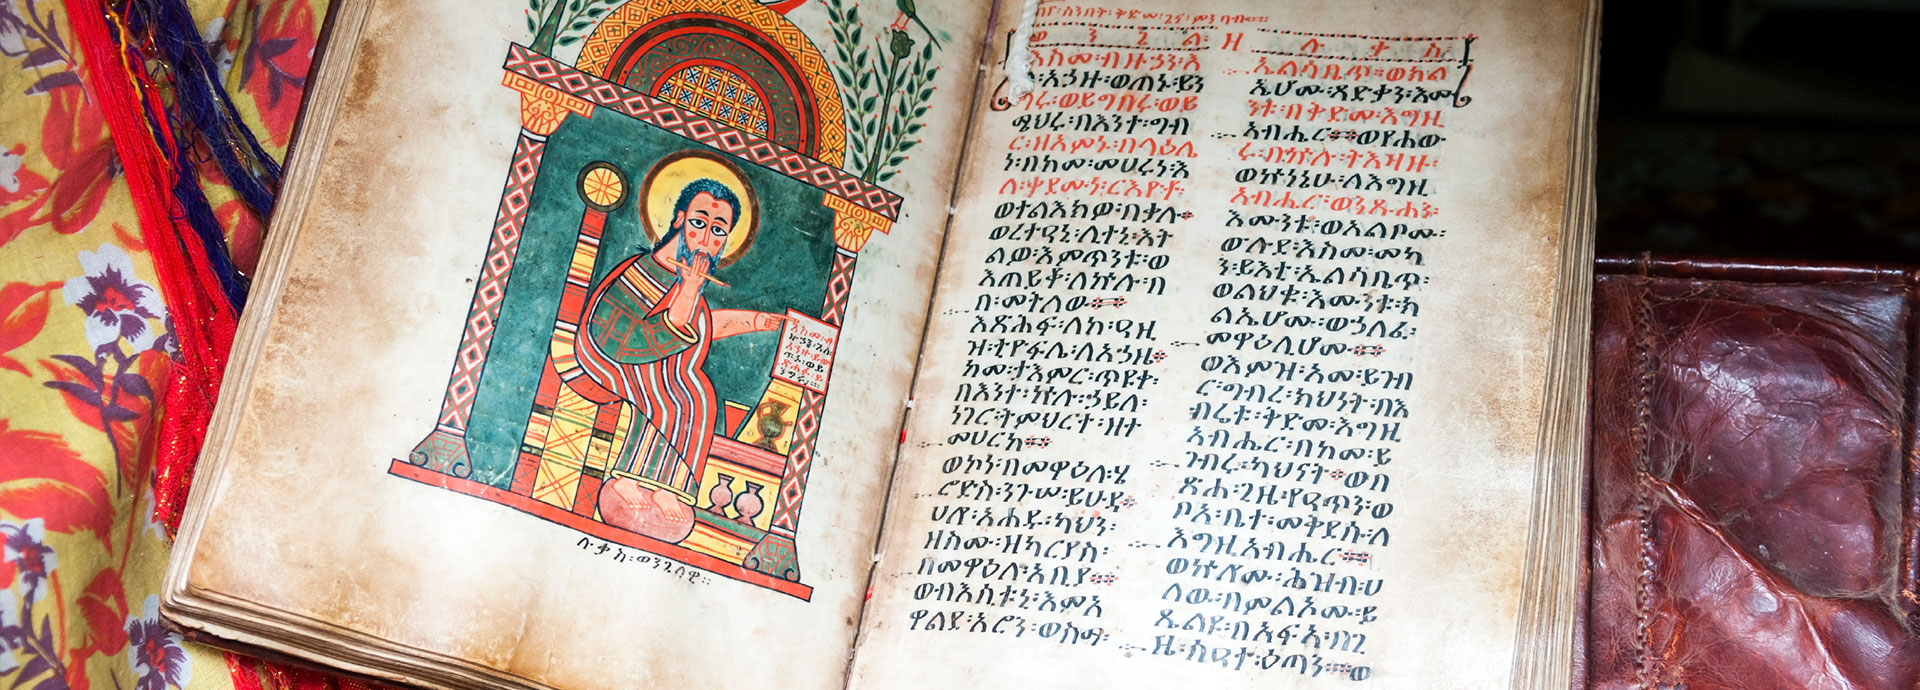 ሉቃስ፡ወንጌላዊ።
ወንጌል፡ዘሉቃስ
እስመ፡ብዙኃን፡እ
ለ፡አኃዙ፡ወጠኑ፡ይን
ግሩ፡ወይግበሩ፡ወይ
ጼህሩ፡በእንተ፡ግብ
ር፡ዘአምኑ፡በላዕሌ
ነ፡በከመ፡መሀሩነ፡እ
ለ፡ቀደሙነ፡ርእዮቶ፡
ወተልእክዎ፡በቃሉ።
ወረተዓኒ፡ሊተኒ፡እት
ልው፡እምጥንቱ፡ወ
እጠይቆ፡ለኵሉ፡በ
በ፡መትልው።
እጽሐፍ፡ለከ፡ዓዚ
ዝ፡ቴዮፍሌ፡ለአኃዜ።
ከመ፡ታእምር፡ጥዩቀ፡
በእንተ፡ኵሉ፡ኃይለ፡
ነገር፡ትምህርተ፡ዘተ
መሀርከ።
ወኮነ፡በመዋዕለ፡ሄ
ሮድስ፡ንጉሠ፡ይሁዳ።
ሀሎ፡አሐዱ፡ካህን፡
ዘስሙ፡ዘካርያስ፡
በመዋዕለ፡አቢያ።
ወብእሲቱኒ፡እምአ
ዋልደ፡አሮን፡ወስማ፡
ኤልሳቤጥ።ወክል
ኤሆሙ፡ጻድቃን፡እሙ
ንቱ፡በቅድመ፡እግዚ
አብሔር።ወየሐው
ሩ፡በኵሉ፡ትእዛዙ፡
ወኵነኔሁ፡ለእግዚ
አብሔር፡ወንጹሐን፡
እሙንቱ፡ወአልቦሙ፡
ውሉደ፡እስመ፡መካ
ን፡ይእቲ፡ኤልሳቤጥ፡
ወልህቁ፡እሙንቱ፡ክ
ልኤሆሙ፡ወኃለፈ፡
መዋዕሊሆሙ።
ወእምዝ፡እመ፡ይገብ
ር፡ግብረ፡ክህነት፡በእ
ብሬቱ፡ቅድመ፡እግዚ
አብሔር፡በከመ፡ይ
ገብሩ፡ካህናት።ወበ
ጽሐ፡ጊዜ፡የዓጥን፡ወ
ቦአ፡ቤተ፡መቅደሱ፡ለ
እግዚአብሔር።
ወኵሎሙ፡ሕዝብ፡ሀ
ለው፡በምልኦሙ፡ይ
ጼልዩ፡በአፍአ፡በጊ
ዜ፡ሰዓተ፡ዕጣን።ወ